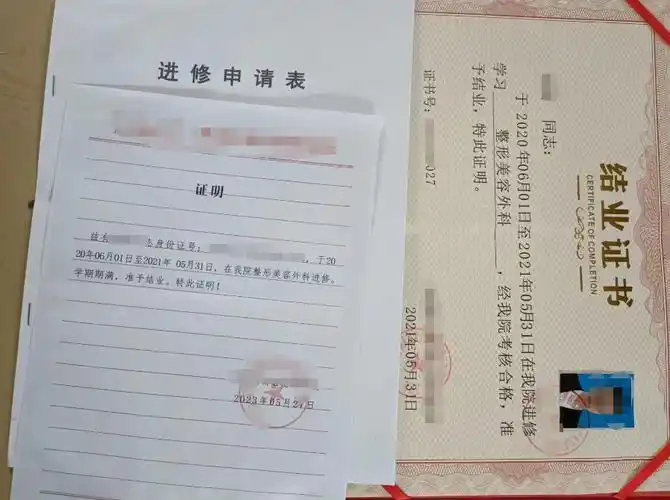 进修申请表
证明
身份证号：
，于20
20年06月01日至2021年 05月31日，在我院整形美容外科进修。
学期期满，准予结业。特此证明！
2023年05月2
日
结业证书
CERTIFICATE OF
COMPLETION
同志：
于 2020年06月01日至2021年05月31日在我院进修
学习 整形美容外科 ，经我院考核合格，准
予结业，特此证明。
证书号：
027
2021年05月31日